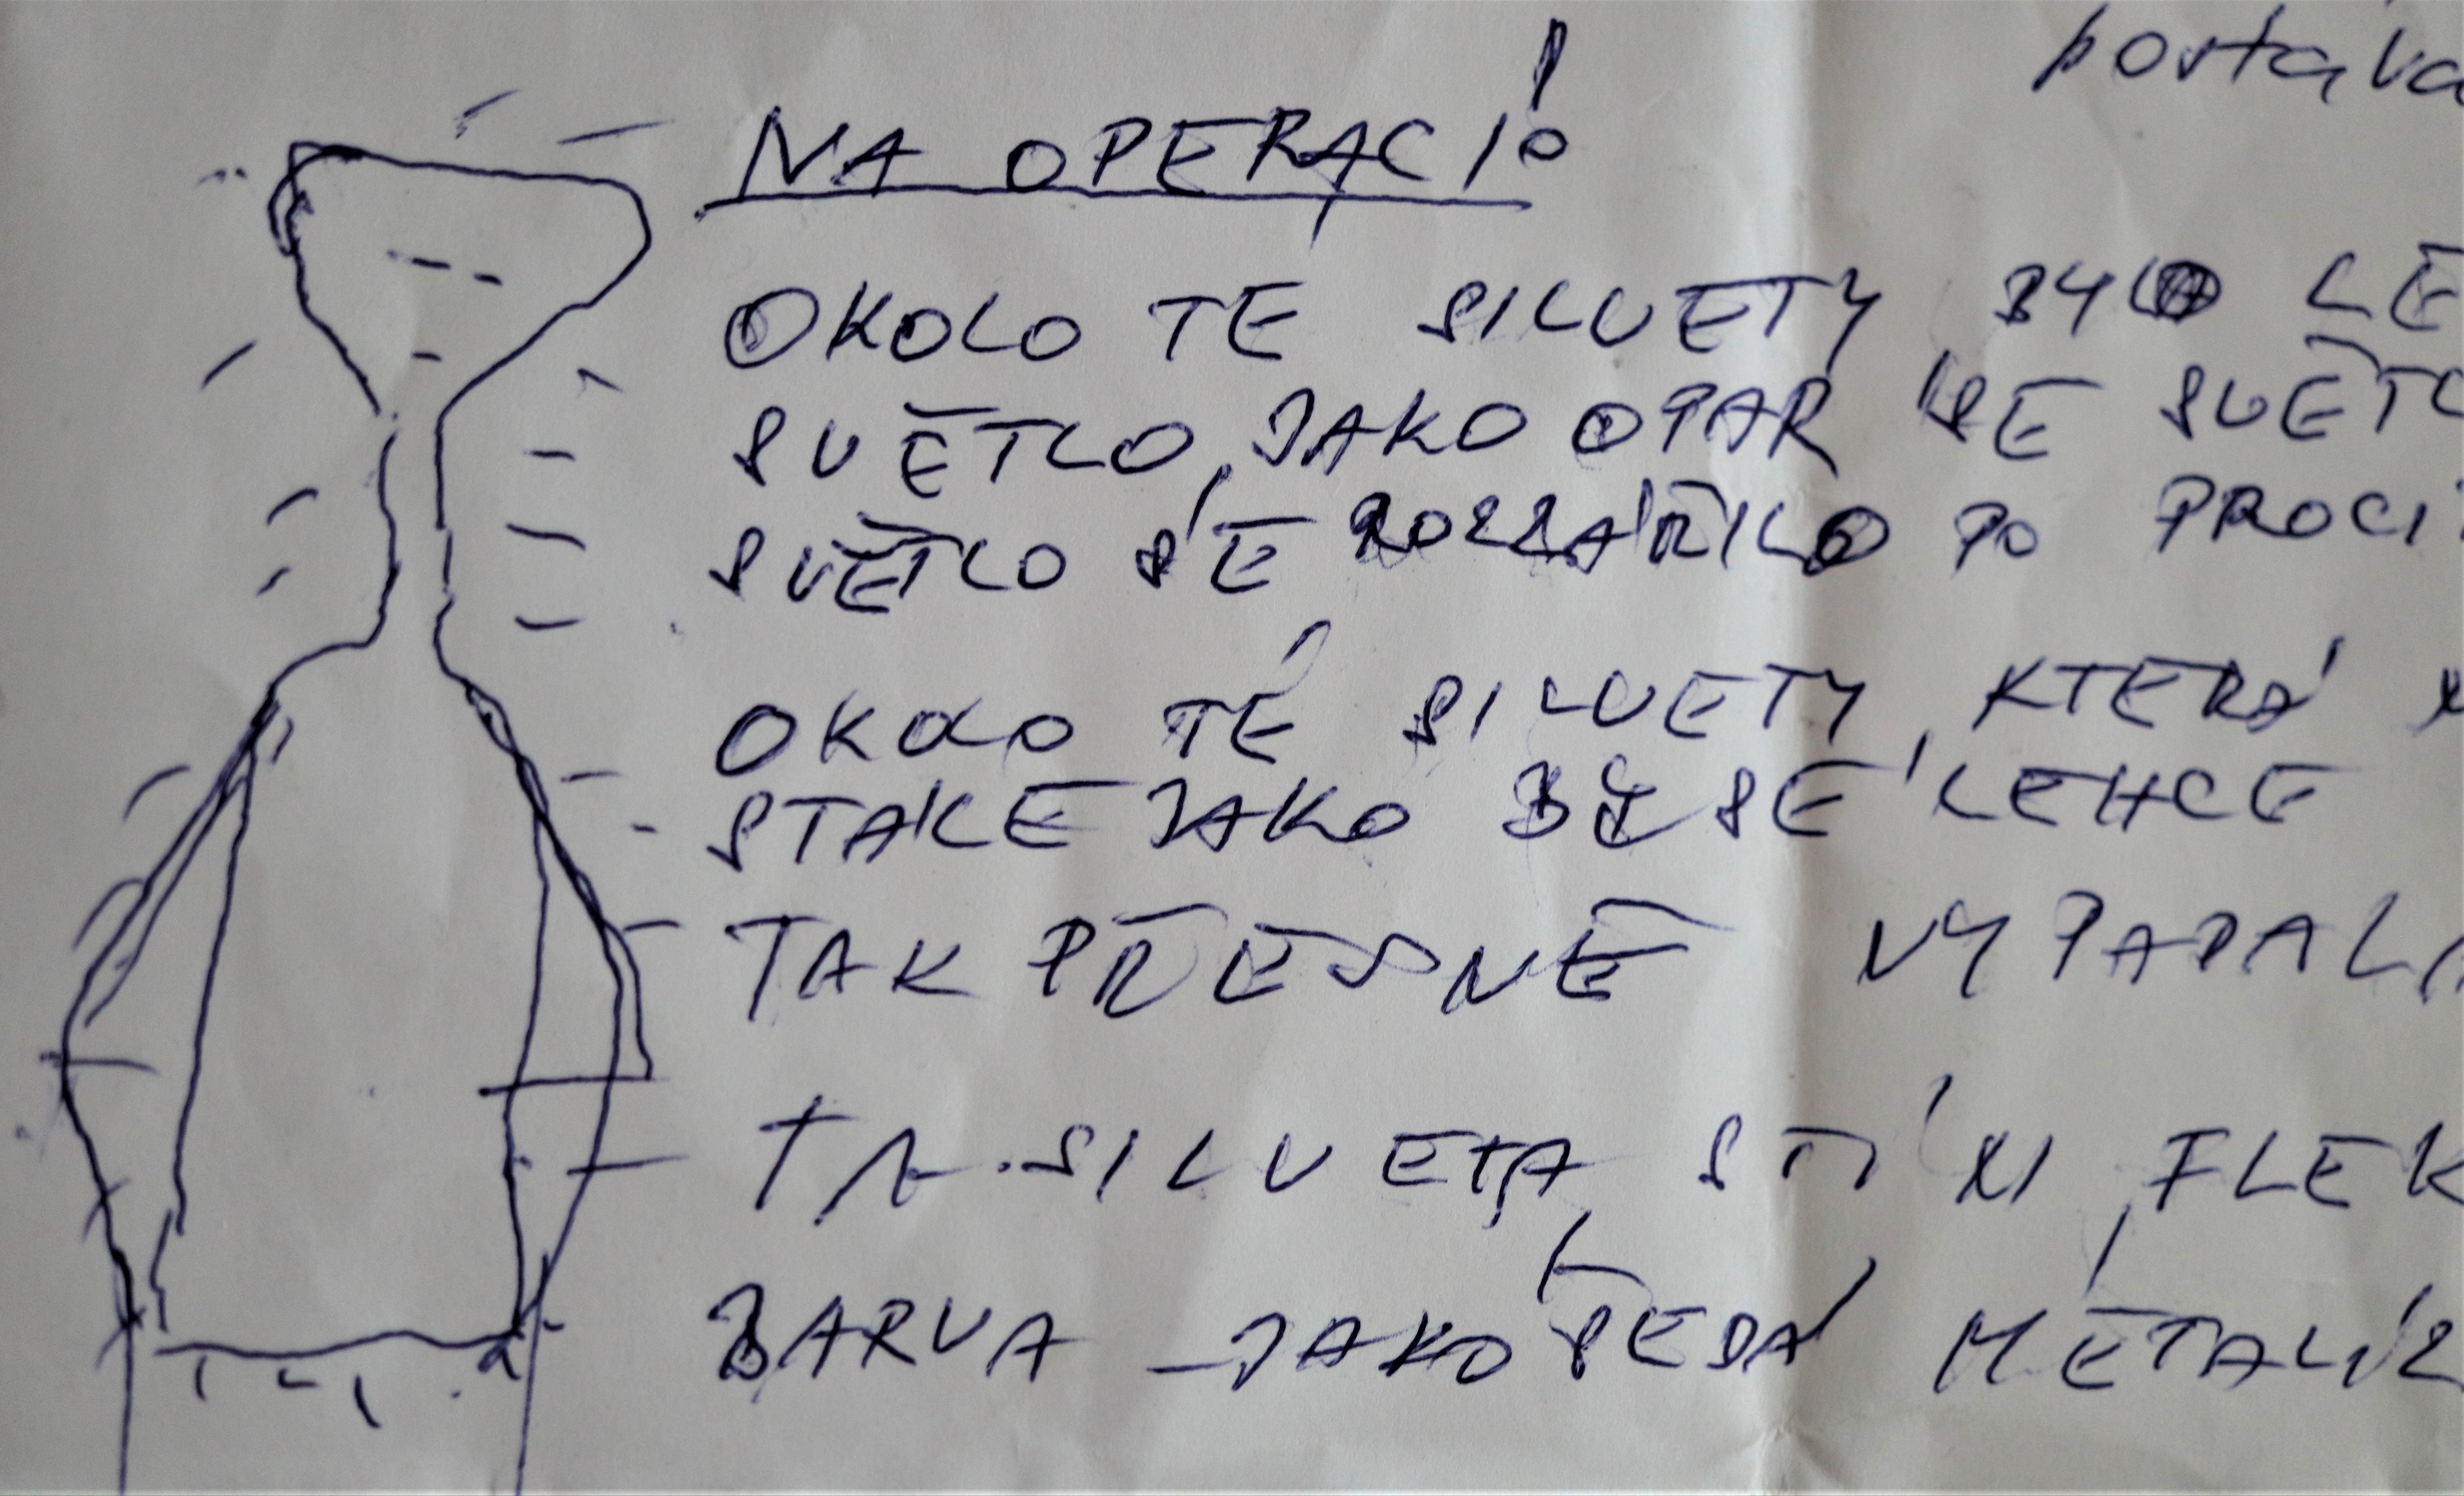 postava
NA OPERACI!
OKOLO TE SILUETY, BYLO LE
SVĚTLO, JAKO OPAR SE SVĚTL
SVĚTLO SE ROZZÁŘILO PO PROCI
OKOLO TÉ SILUETY, KTERÁ
STALE JAKO BY SE LEHCE
TAK PŘESNĚ VYPADALA
TA SILVETA, STÍN, FLEK
BARVA - JAKO ŠEDÁ METALÍZ